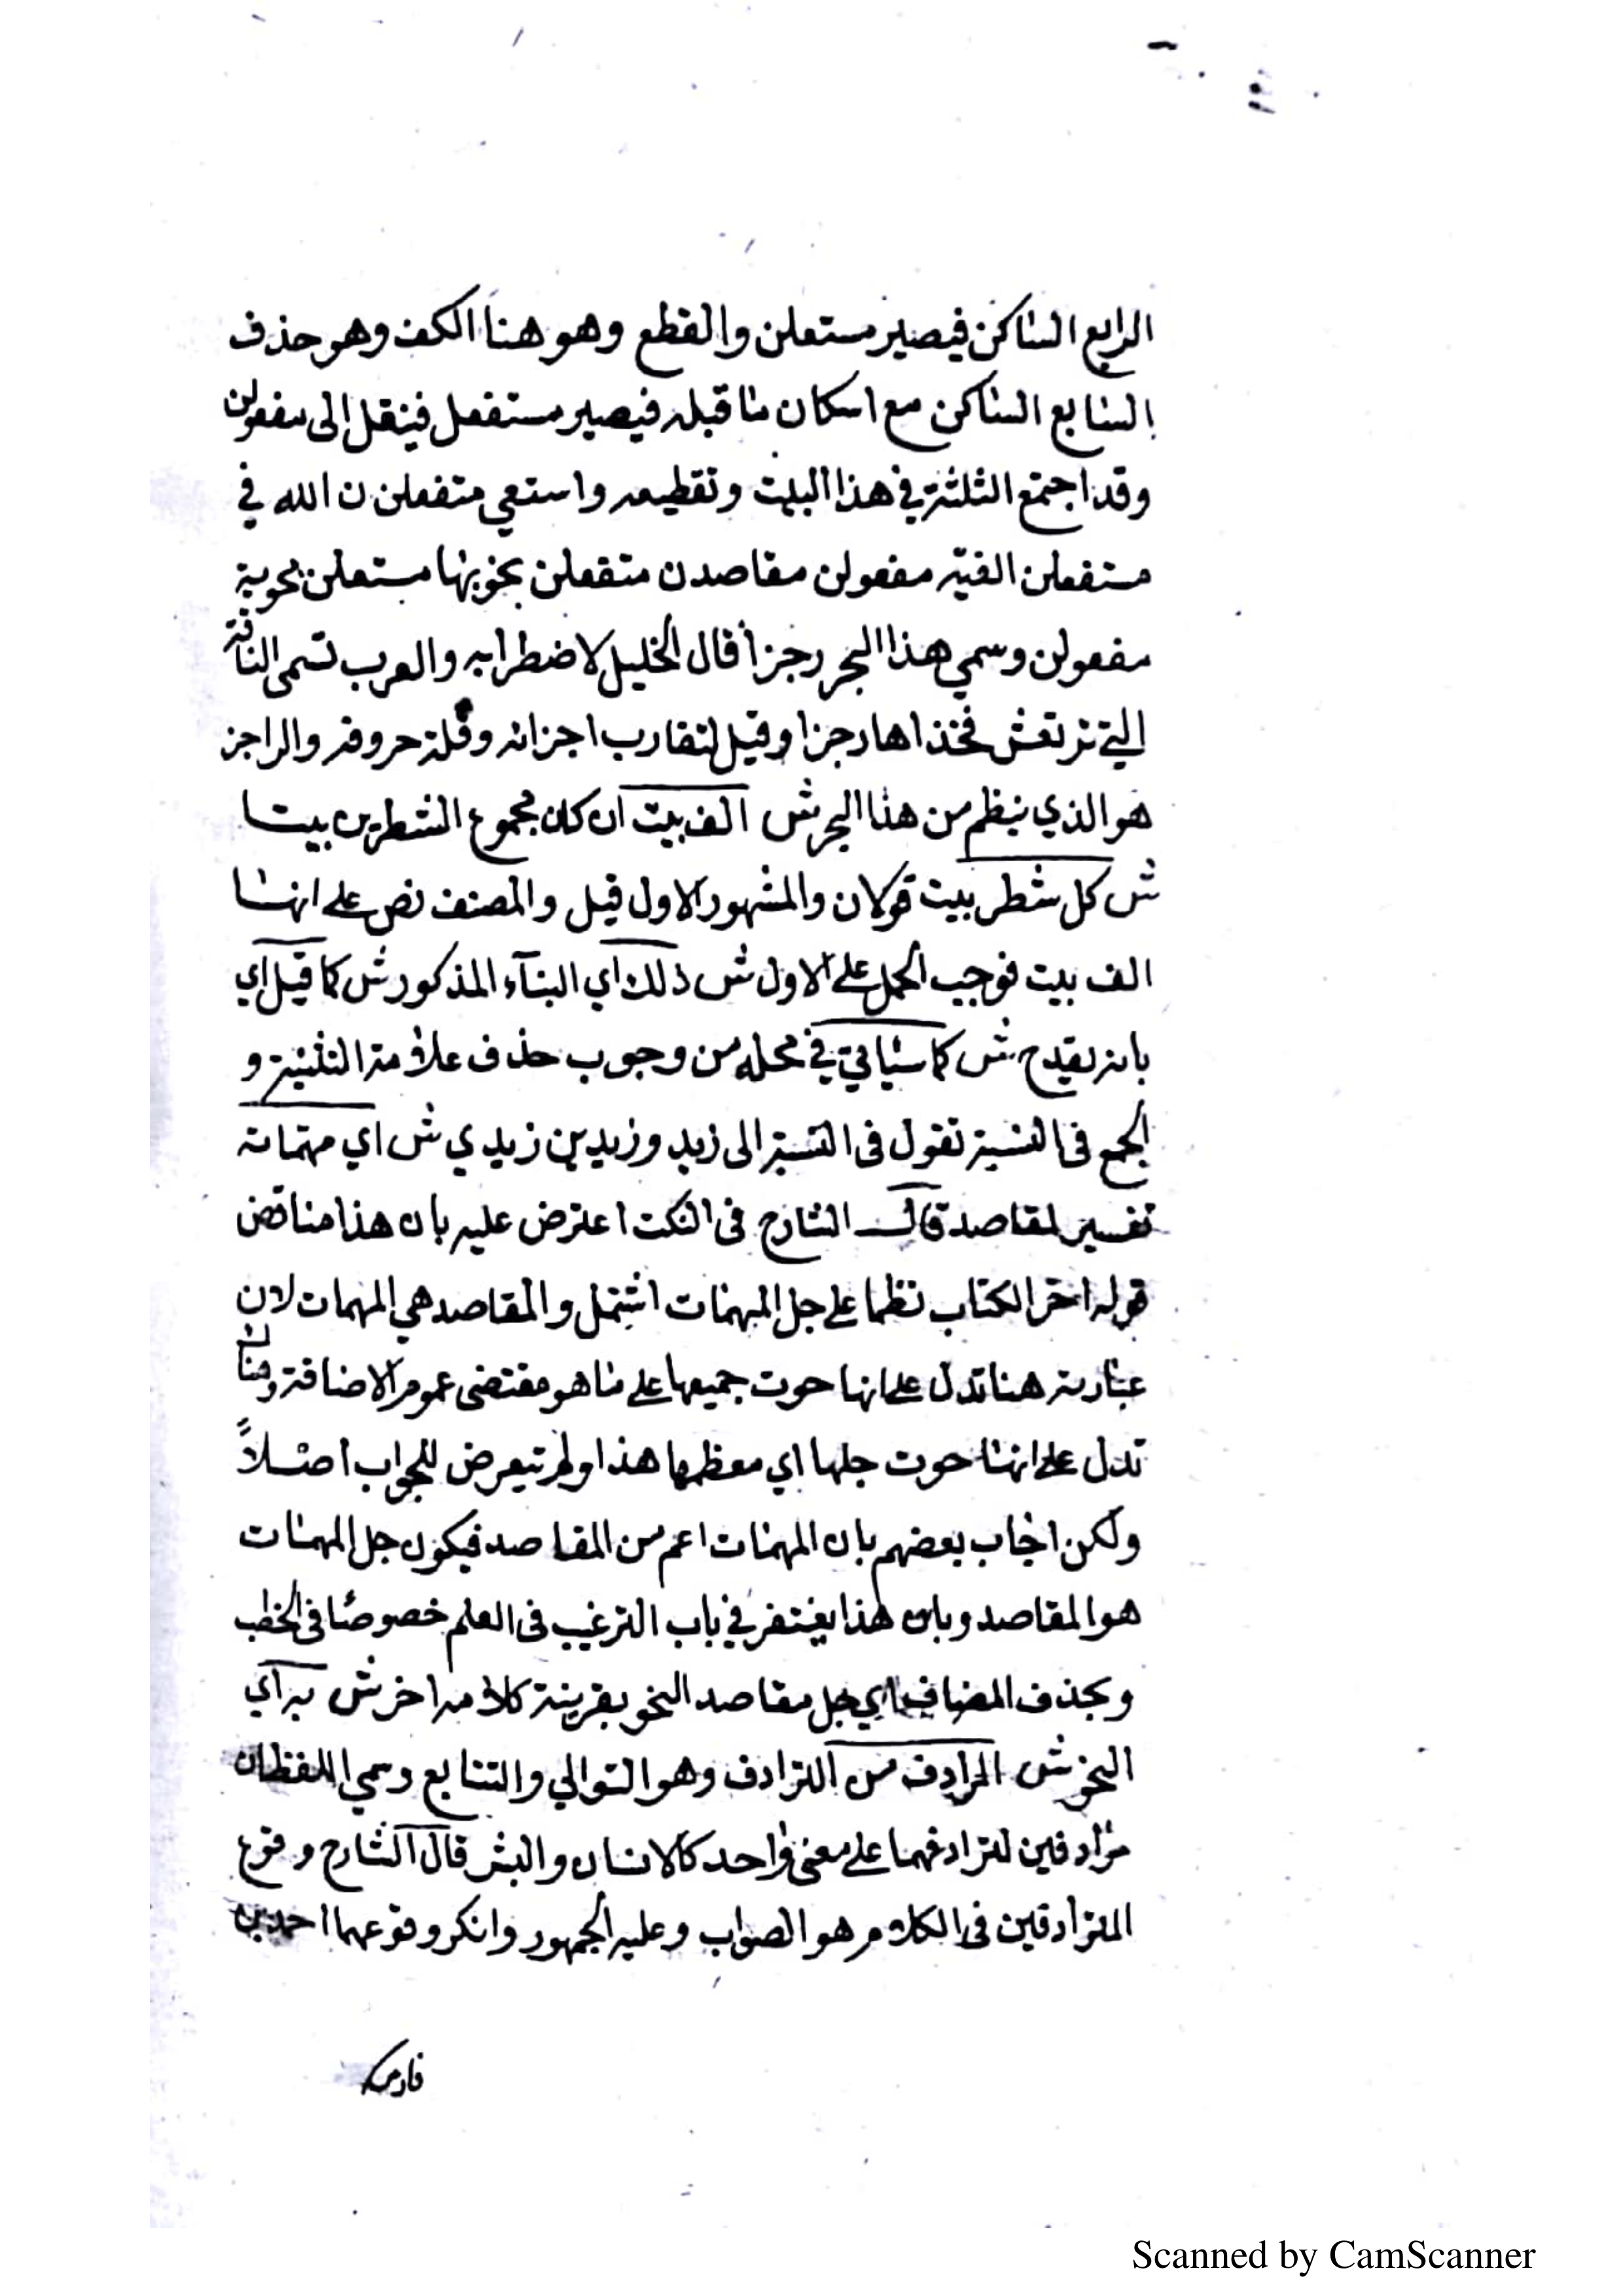 الرابع الساكن فيصير مستعلن والقطع وهو هنا الكف وهو حذف
السابع الساكن مع اسكان ما قبله فيصير مستفعل فينقل إلى مفعولن
وقد اجتمع الثلثة في هذا البيت وتقطيعه واستعي متفعلن ن الله في
مستفعلن الفيه مفعولن مقاصدن متفعلن نحوبها مستعلن محويه
مفعولن وسمي هذا البحر رجزا قال الخليل لاضطرابه والعرب تسمى الناقة
التي ترتعش فخذاها رجزا وقيل لتقارب اجزائه وقلة حروفه والراجز
هو الذي ينظم من هذا البحر ش الف بيت ان كان مجموع الشطرين بيتا
ش كل شطر بيت قولان والمشهور الاول قيل والمصنف نص على انها
الف بيت فوجب الحمل على الاول ش ذلك اي البنآء المذكور ش كما قيل اي
بانه يقدح ش كما سياتي في محله من وجوب حذف علامة التثنية و
الجمع فى النسبة تقول فى النسبة الى زيد وزيدين زيدي ش اي مهماته
تفسير لمقاصد قال الشارح فى النكت اعترض عليه بان هذا مناقض
قوله اخر الكتاب نظما على جل المهمات اشتمل والمقاصد هي المهمات لان
عبارته هنا تدل على انها حوت جميعها على ما هو مقتضى عموم الاضافة وهناك
تدل على انها حوت جلها اي معظمها هذا ولم تيعرض للجواب اصلاً
ولكن اجاب بعضهم بان المهمات اعم من المقاصد فيكون جل المهمات
هو المقاصد وبان هذا يغتفر في باب الترغيب فى العلم خصوصا فى الخطب
وبحذف المضاف اي جل مقاصد النحو بقرينة كلامه اخر ش به اي
النحو ش المرادف من الترادف وهو التوالي والتتابع وسمي اللفظان
مرادفين لترادفهما على معنى واحد كالانسان والبشر قال الشارح وقوع
المترادفين فى الكلام هو الصواب وعليه الجمهور وانكر وقوعهما احمد بن
فارس
Scanned by CamScanner